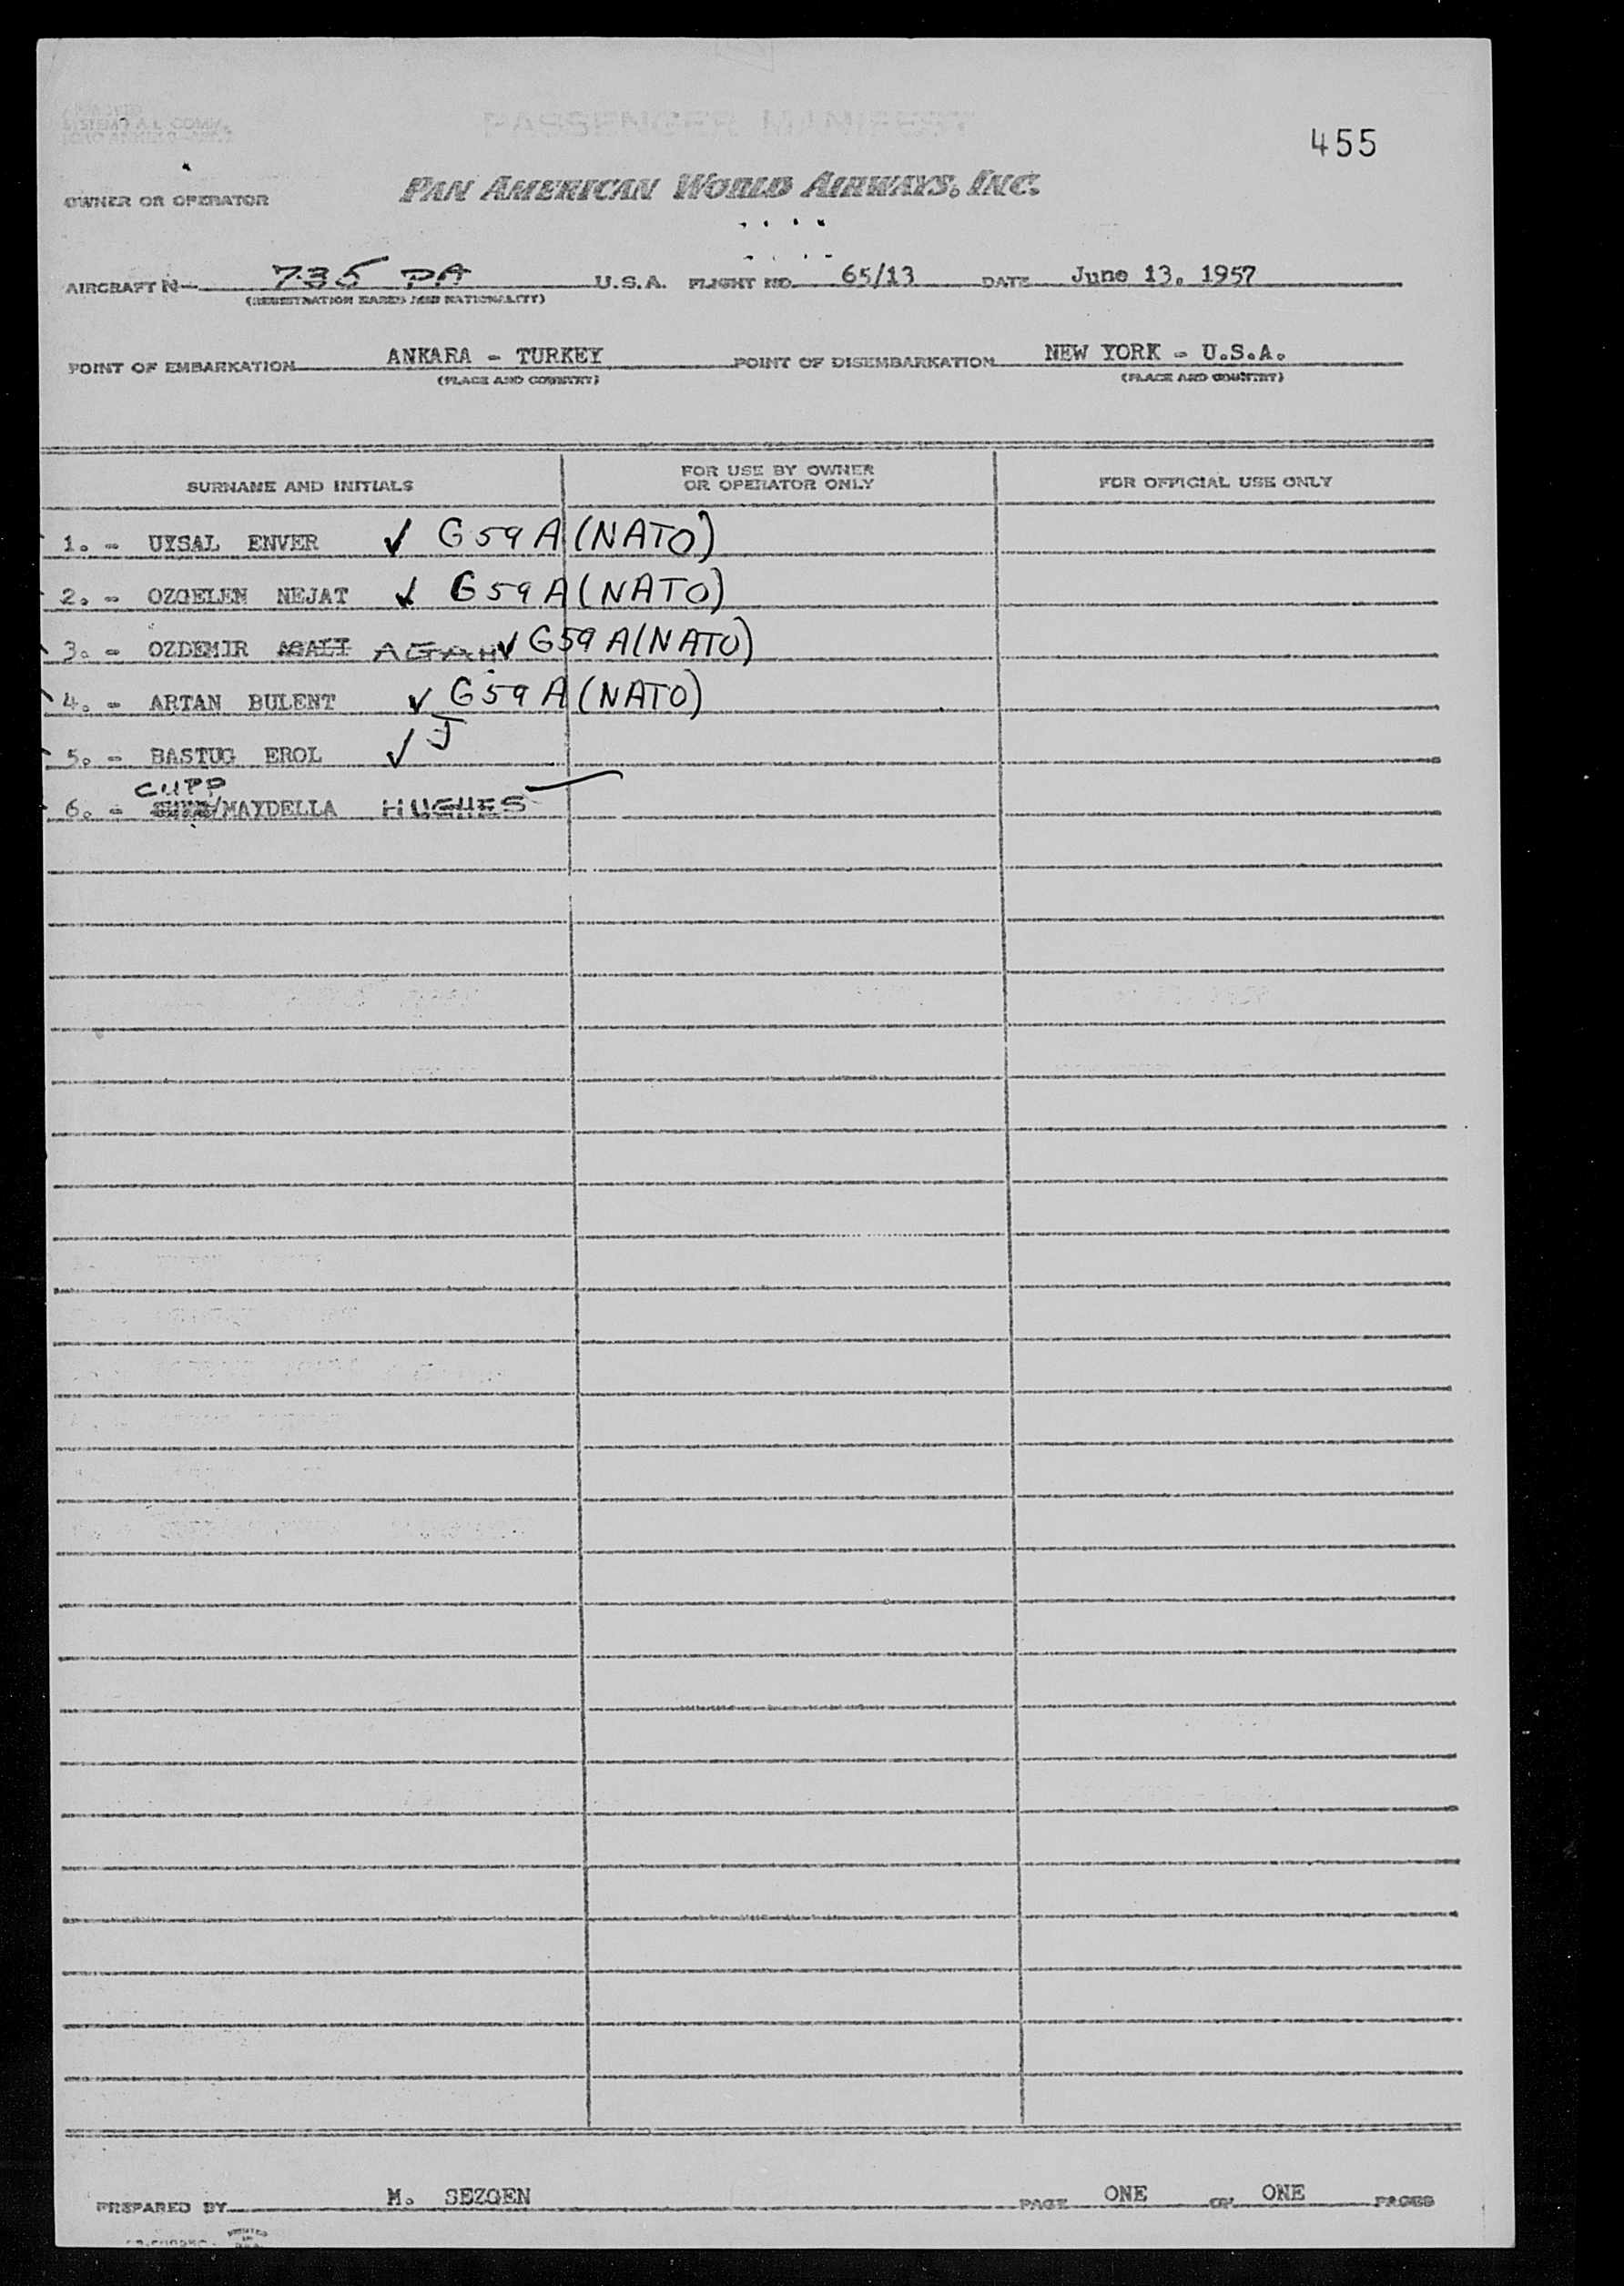 PASSENGER MANIFEST
455
OWNER OR OPERATOR PAN AMERICAN WORLD AIRWAYS, INC.
AIRCRAFT N- 735 PA U.S.A. FLIGHT NO. 65/13 DATE June 13, 1957
(REGISTRATION MARKS AND NATIONALITY)
POINT OF EMBARKATION ANKARA - TURKEY POINT OF DISEMBARKATION NEW YORK - U.S.A.
(PLACE AND COUNTRY) (PLACE AND COUNTRY)
SURNAME AND INITIALS FOR USE BY OWNER OR OPERATOR ONLY FOR OFFICIAL USE ONLY
1. - UYSAL ENVER ✓ G59A (NATO)
2. - OZGELEN NEJAT ✓ G59A (NATO)
3. - OZDEMIR AGALI AGAH ✓ G59A (NATO)
4. - ARTAN BULENT ✓ G59A (NATO)
5. - BASTUG EROL ✓ J
CUPP
6. - /MAYDELLA HUGHES
PREPARED BY M. SEZGEN PAGE ONE OF ONE PAGES
PRINTED IN U.S.A.